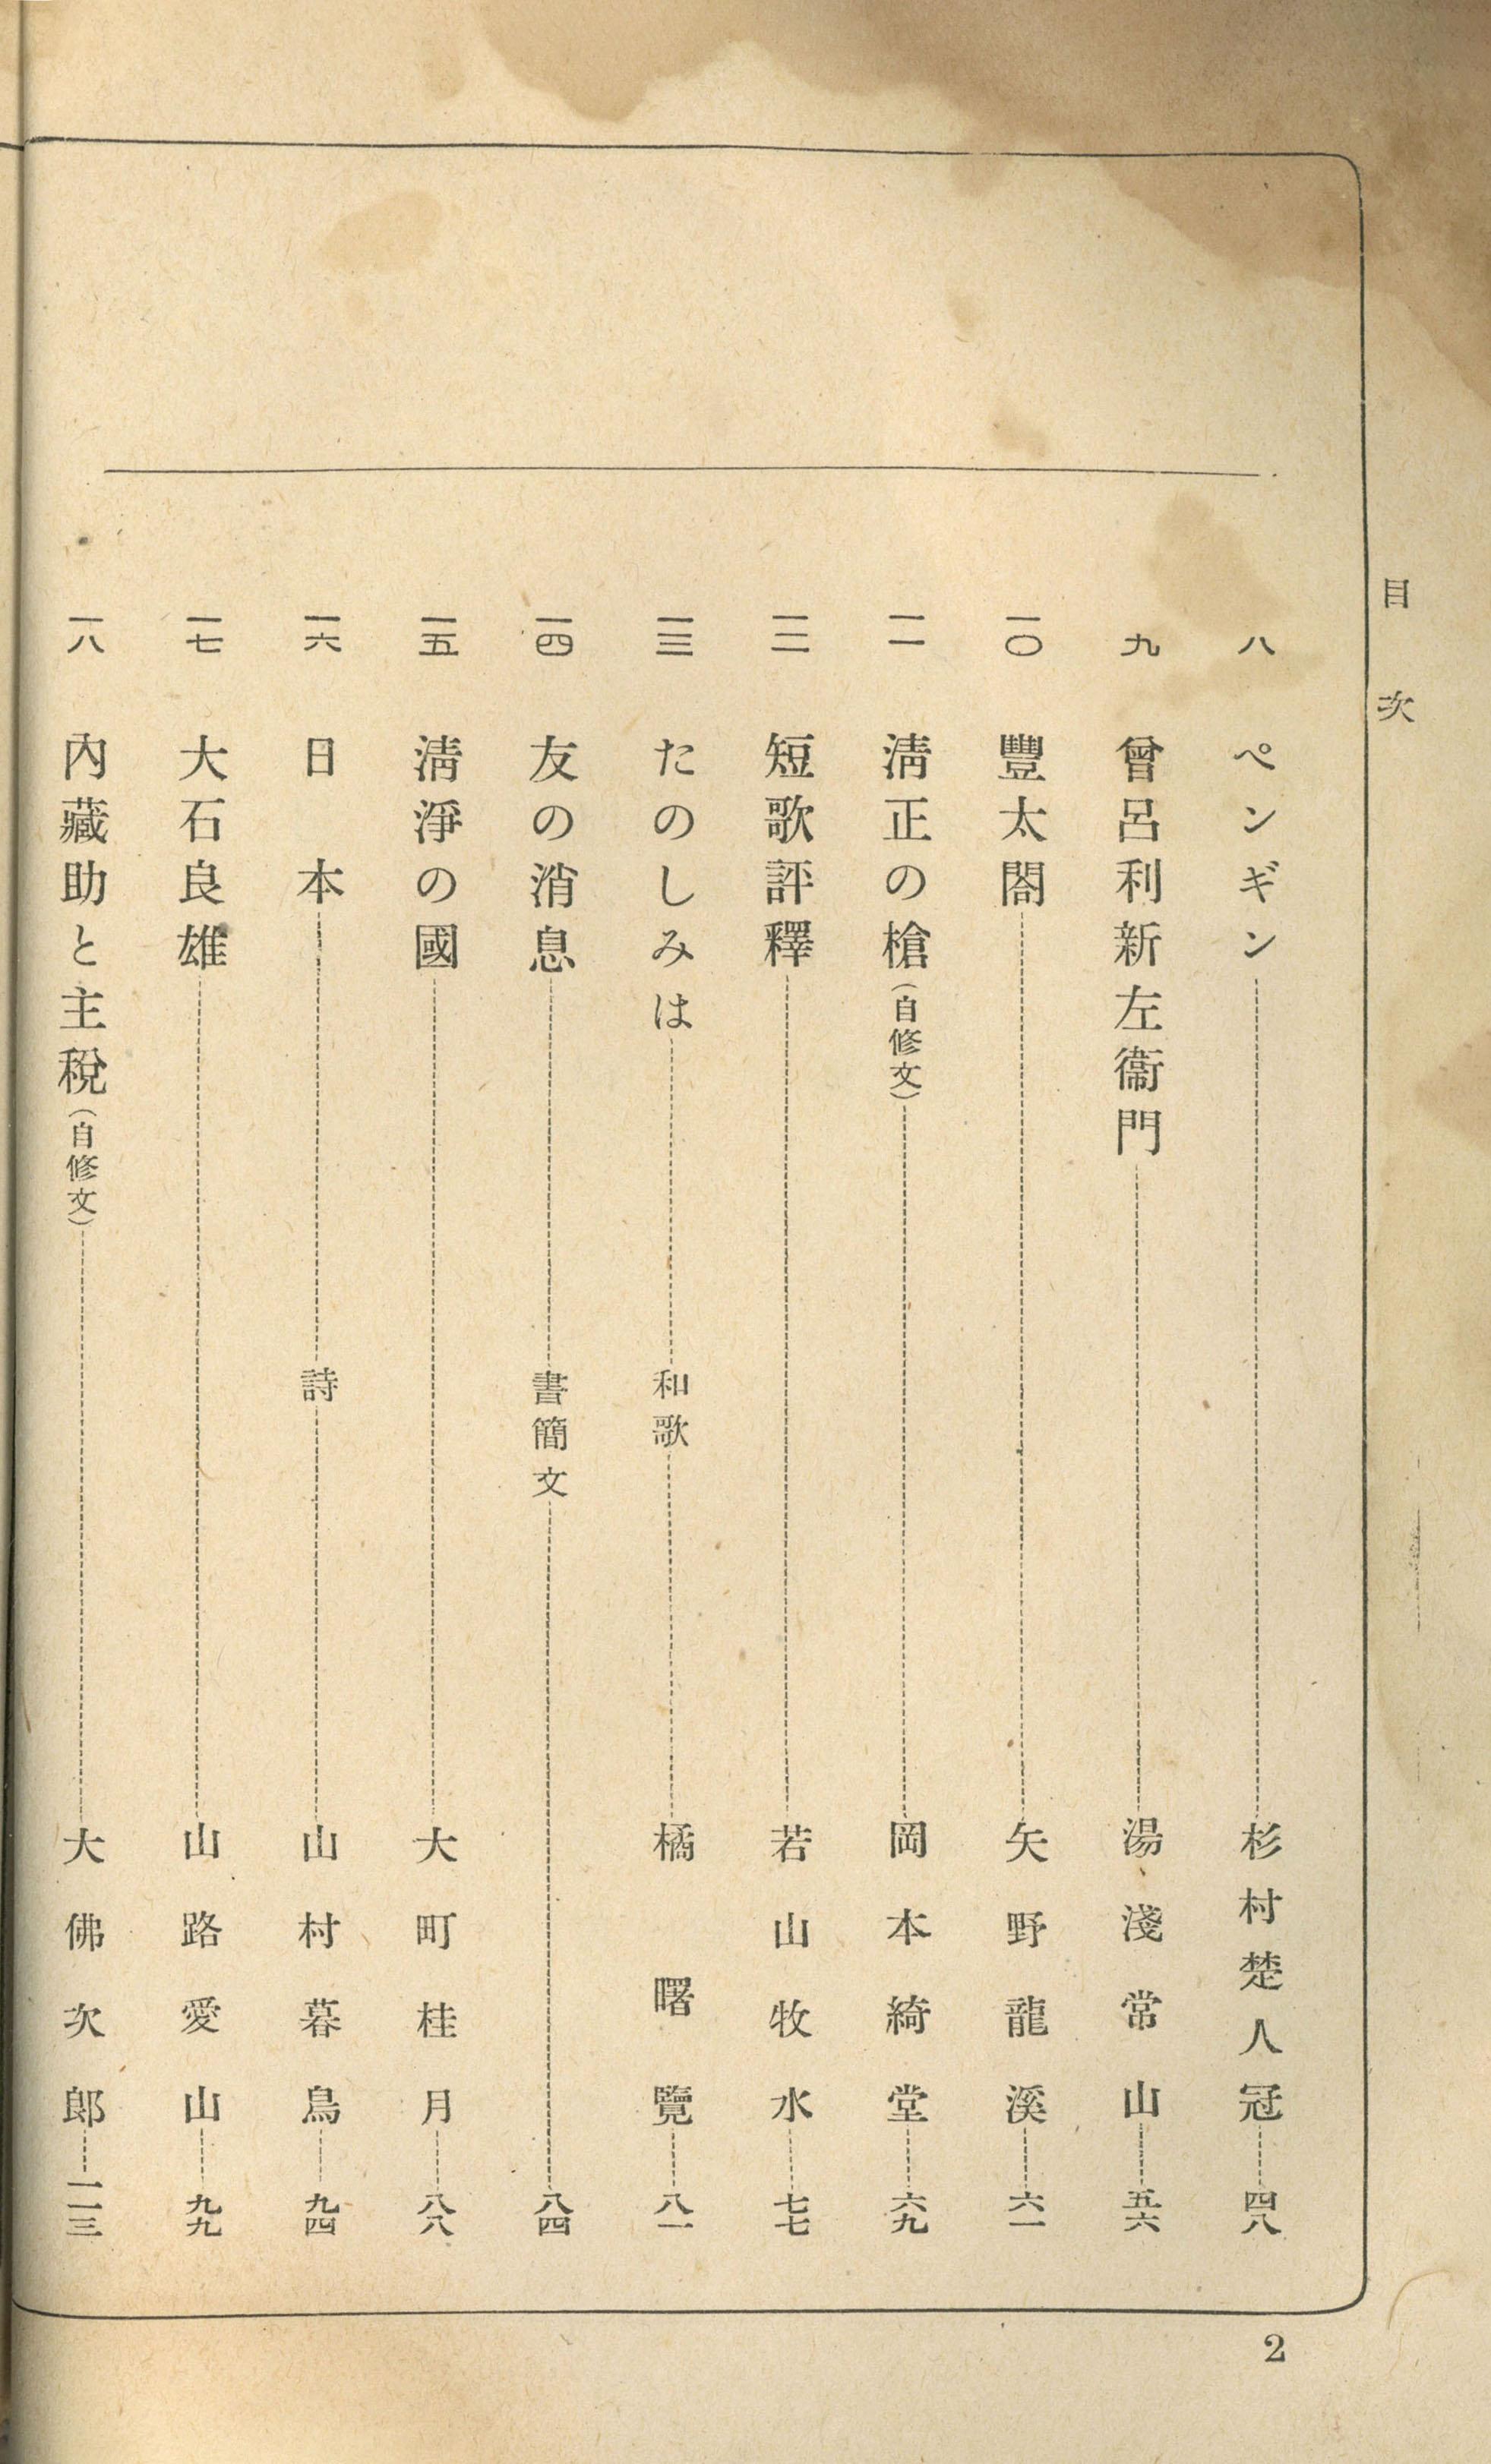 目次
八 ペンギン 杉村楚人冠 四八
九 曾呂利新左衞門 湯淺常山 五六
一〇 豐太閤 矢野龍溪 六一
一一 淸正の槍（自修文） 岡本綺堂 六九
一二 短歌評釋 若山牧水 七七
一三 たのしみは 和歌 橘曙覽 八一
一四 友の消息 書簡文 八四
一五 淸淨の國 大町桂月 八八
一六 日本 詩 山村暮鳥 九四
一七 大石良雄 山路愛山 九九
一八 內藏助と主稅（自修文） 大佛次郎 一一三
2